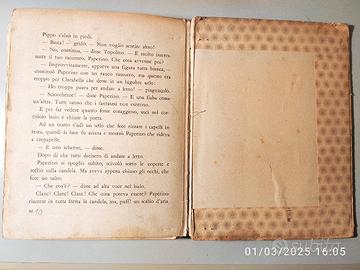 Pippo s'alzò in piedi.
— Basta! — gridò. — Non voglio sentire altro!
— No, continua, — disse Topolino. — È molto interes-
sante il tuo racconto, Paperino. Che cosa avvenne poi?
— Improvvisamente, apparve una figura tutta bianca, —
continuò Paperino con un rauco sussurro, ma questo era
troppo per Clarabella che dette in un lugubre urlo.
— Ho troppa paura per andare a letto! — piagnucolò.
— Sciocchezze! — disse Paperino. — È una fiaba come
un'altra. Tutti sanno che i fantasmi non esistono.
E per far vedere quanto fosse coraggioso, uscì nel cor-
ridoio buio e chiuse la porta.
Ad un tratto s'udì un urlo che fece rizzare i capelli in
testa, quindi la luce fu accesa e mostrò Paperino che rideva
a crepapelle.
— È uno scherzo, — disse.
Dopo di che tutti decisero di andare a letto.
Paperino si spogliò subito, scivolò sotto le coperte e
soffiò sulla candela. Ma aveva appena chiuso gli occhi, che
fece un salto.
— Che cos'è? — disse ad alta voce nel buio.
Clanc! Clanc! Clanc! Che cosa poteva essere? Paperino
riaccese in tutta fretta la candela, ma, paff! un soffio d'aria
subito
01/03/2025 16:05